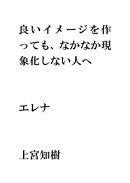 良いイメージを作
っても、なかなか現
象化しない人へ
エレナ
上宮知樹